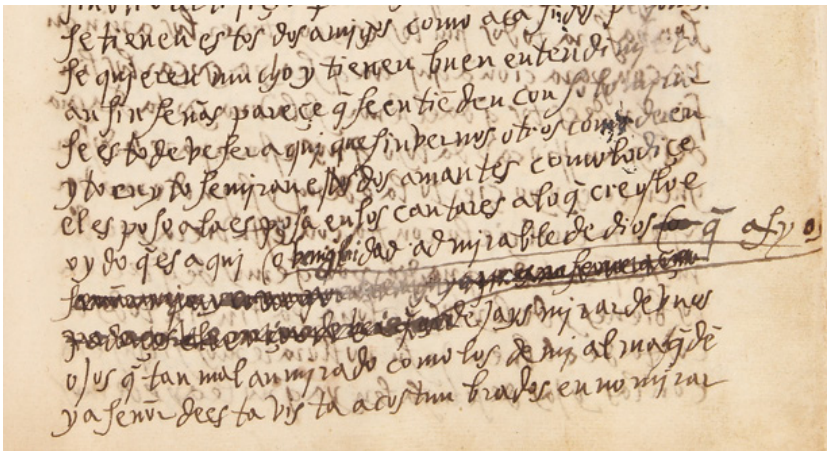 se tienen estos dos amigos como aca si dos
se quieren mucho y tienen buen entendimi
aun sin señas pareçe q̃ se entiẽden con solo mirar
se esto deve ser aqui que sin ver nosotros como de en
yto en yto se miran estos dos amantes como lo diçe
el esposo a la esposa en los cantares a lo q̃ creo
oydo q̃ es aqui o benignidad admirable de dios q̃ asy o
dejays mirar de unos
ojos q̃ tan mal an mirado como los de mi alma q̃dẽ
ya señor de esta vista acostunbrados en no mirar